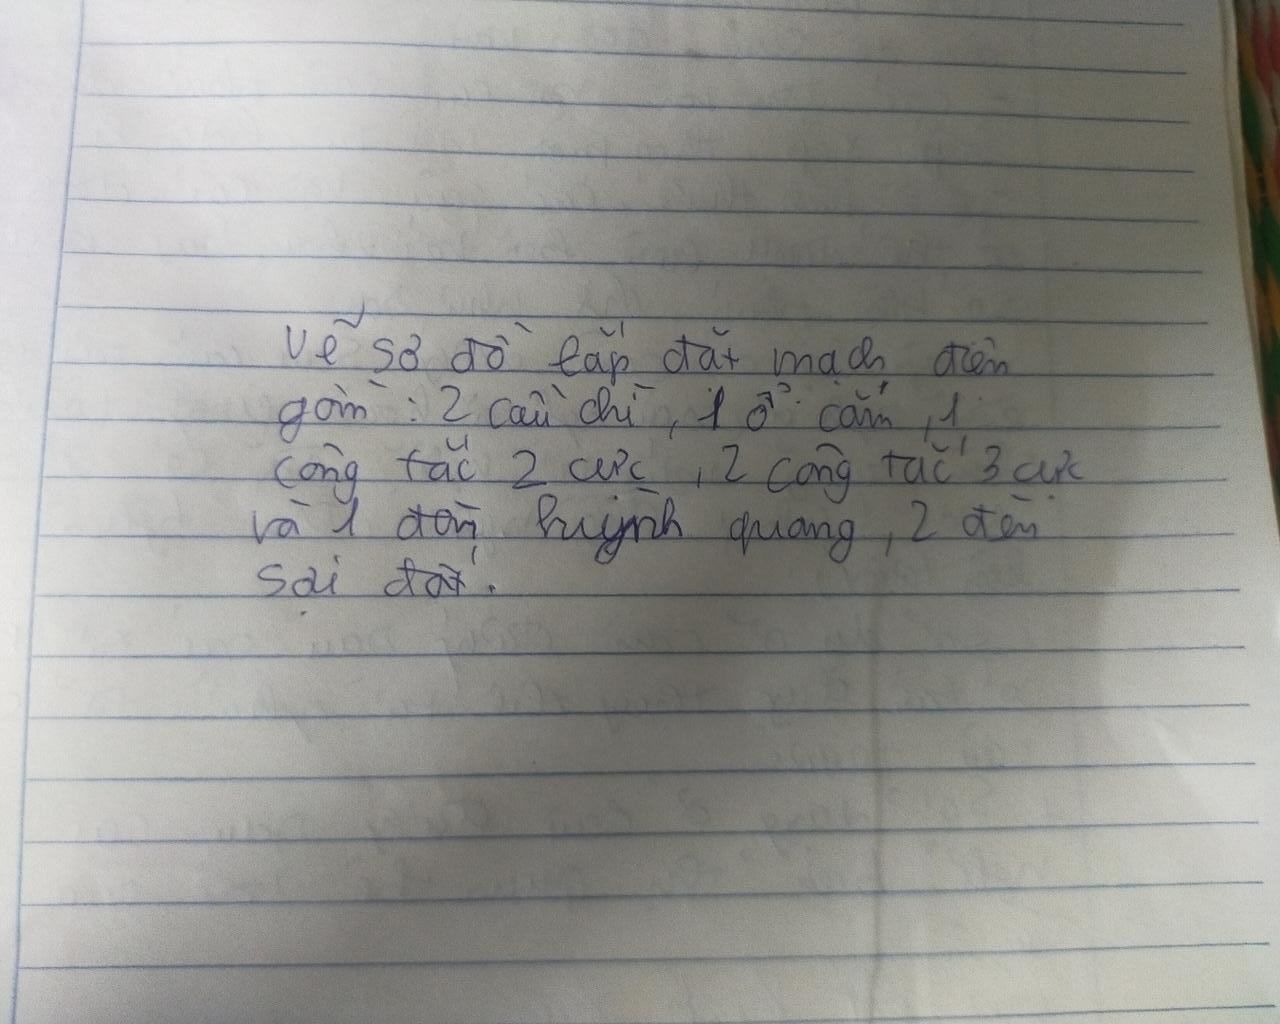 Vẽ sơ đồ lắp đặt mạch điện
gồm : 2 cầu chì, 1 ổ cắm, 1
công tắc 2 cực, 2 công tắc 3 cực
và 1 đèn huỳnh quang, 2 đèn
sợi đốt.